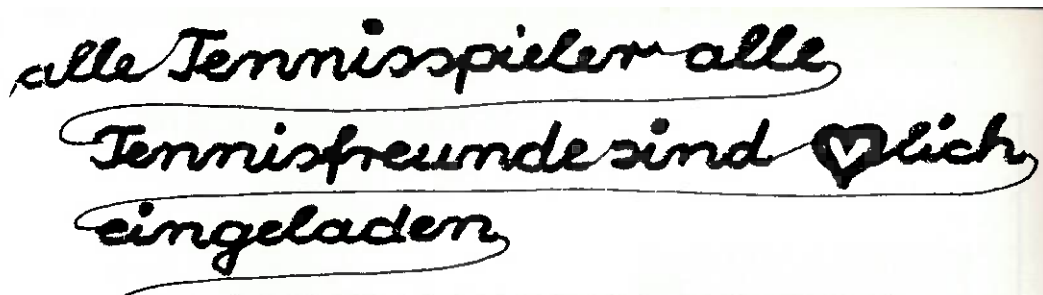 alle Tennisspieler alle
Tennisfreunde sind ♥lich
eingeladen